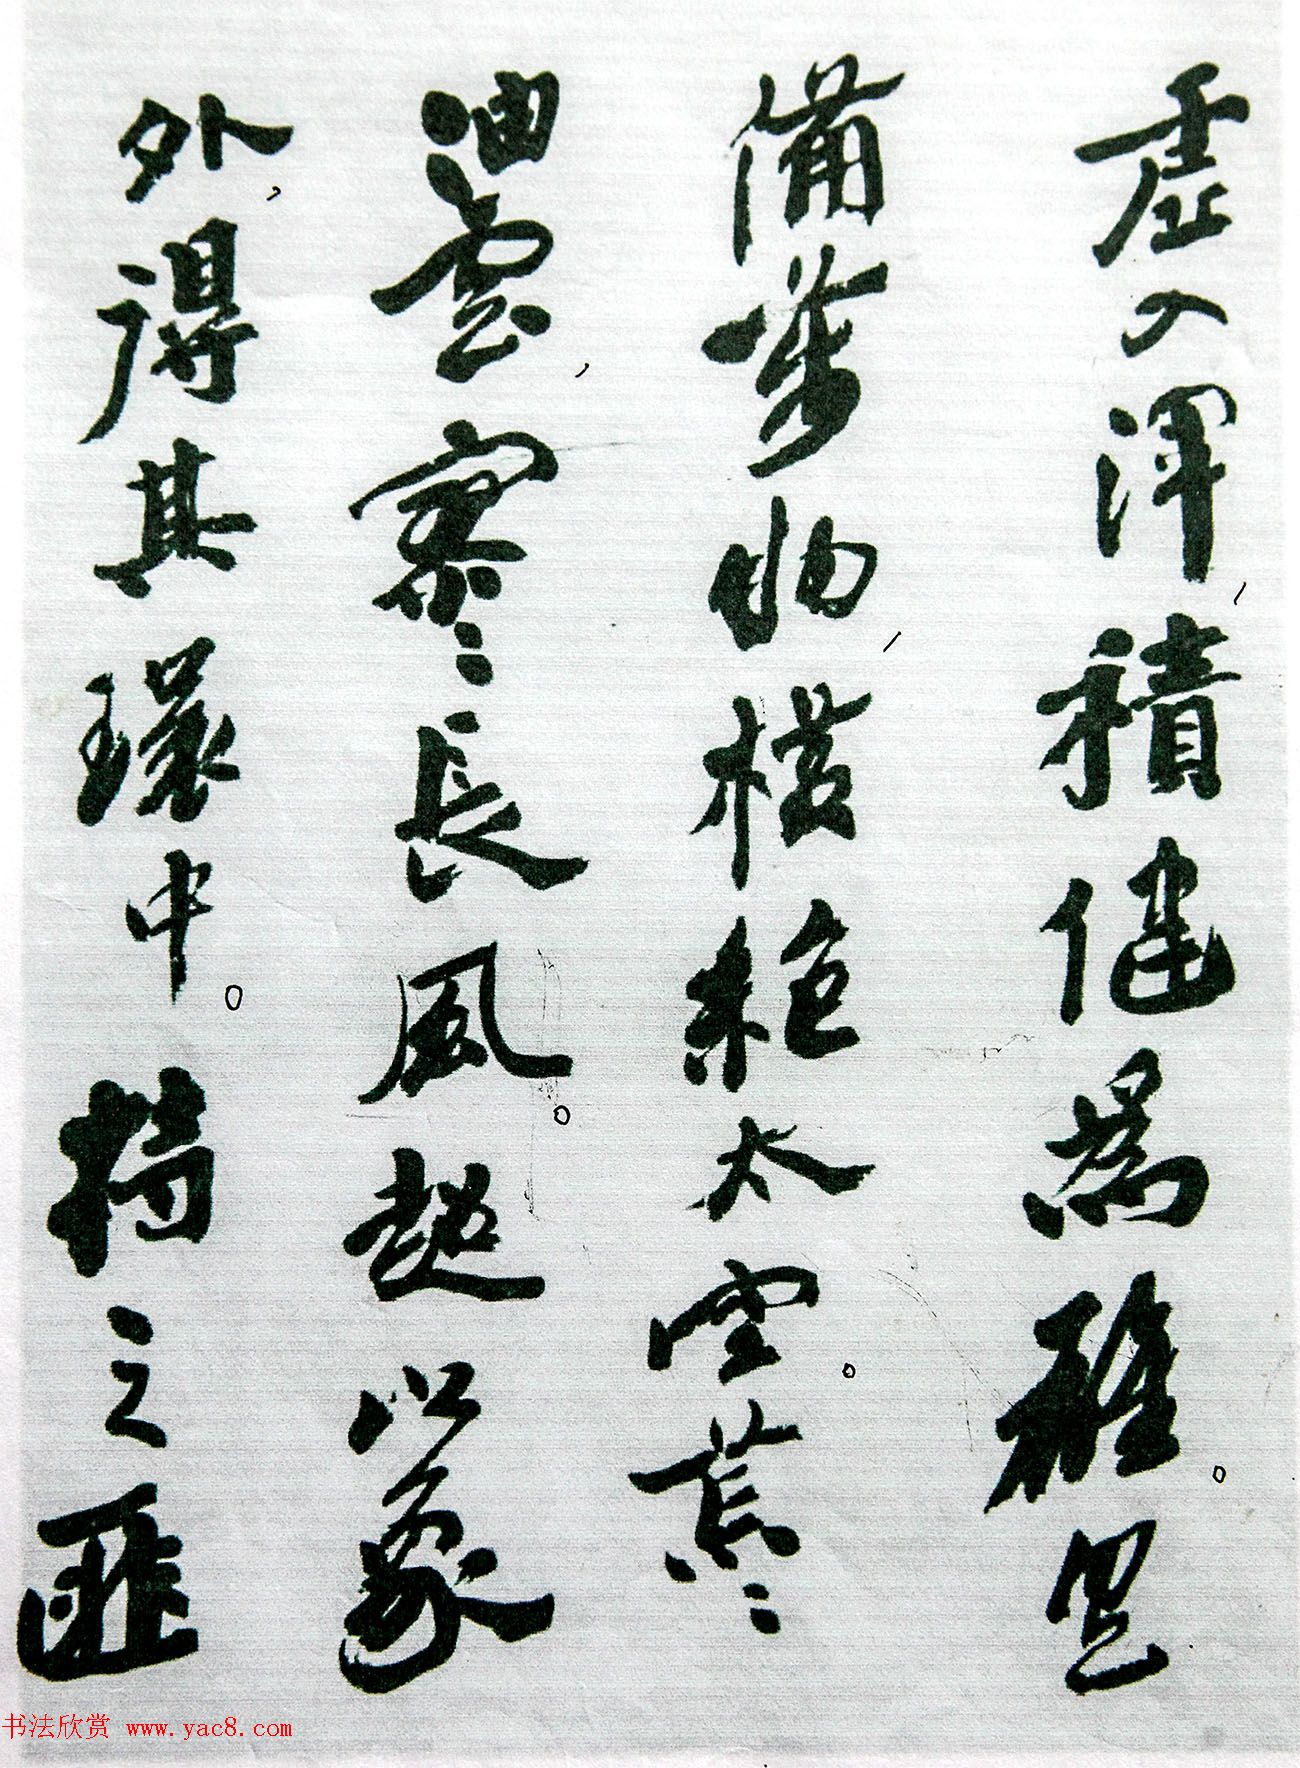 虛入渾，積健為雄。具
備萬物，橫絕太空。荒〻
油雲，寥〻長風。超以象
外，得其環中。持之匪
书法欣赏 www.yac8.com